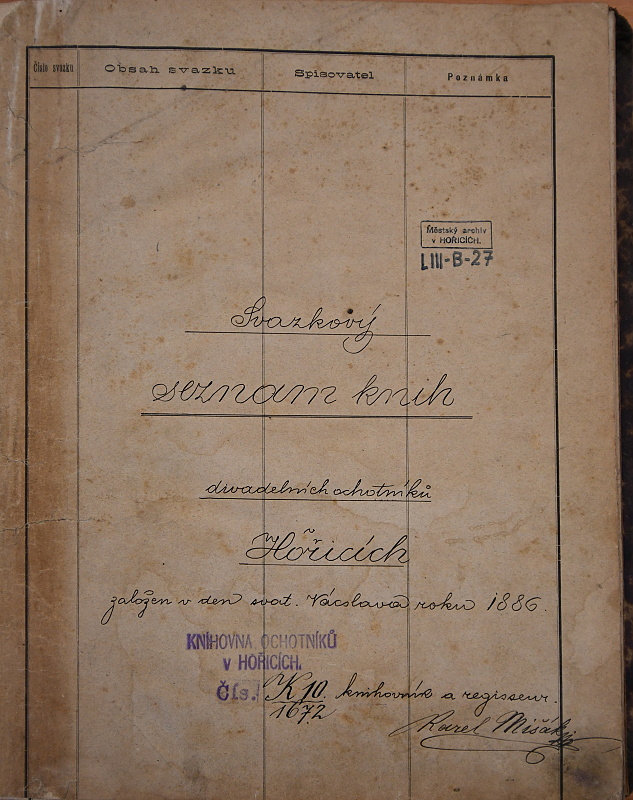 Číslo svazku Obsah svazku Spisovatel Poznámka
Městský archiv
v HOŘICÍCH.
LIII-B-27
Svazkový
seznam knih
divadelních ochotníků
Hořicích
založen v den svat. Václava roku 1886.
KNIHOVNA OCHOTNÍKŮ
v HOŘICÍCH.
Čís. K 10. knihovník a regisseur.
1672
Karel